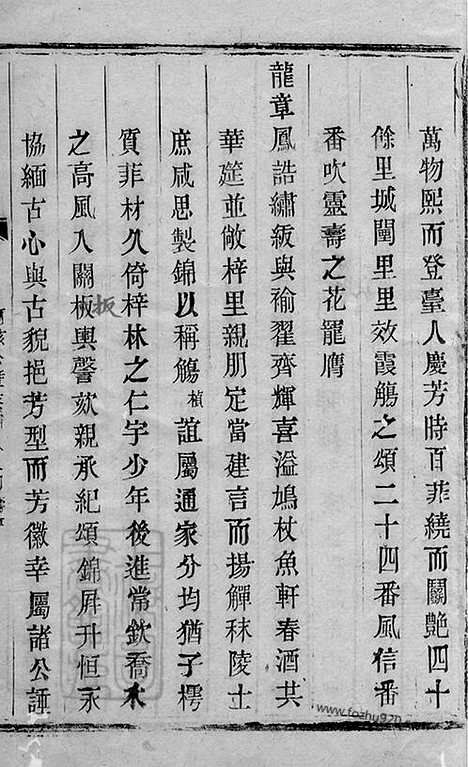 萬物熙而登臺人慶芳時百菲繞而鬭艷四十
餘里城闉里里效霞觴之頌二十四番風信番
番吹靈壽之花寵膺
龍章鳳誥繡紱與褕翟齊輝喜溢鳩杖魚軒春酒共
華筵並敞梓里親朋定當建言而揚觶秣陵士
庶咸思製錦以稱觴植誼屬通家分均猶子樗
質菲材久倚梓林之仁宇少年後進常欽喬木
之高風入關板輿謦欬親承紀頌錦屛升恒永
協緬古心與古貌挹芳型而芳徽幸屬諸公諈
板
www.fozhu920.com